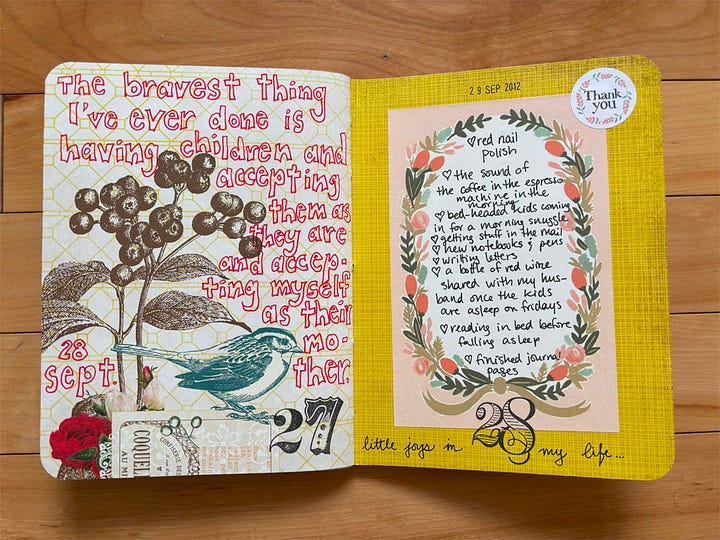 The bravest thing
I've ever done is
having children and
accepting
them as
they are
and accep-
ting myself
as their
mo-
ther.
28
sept.
27
COQUELI
AU MI
29 SEP 2012
Thank
you
♡ red nail
polish
♡ the sound of
the coffee in the espresso
machine in the
morning
♡ bed-headed kids coming
in for a morning snuggle
♡ getting stuff in the mail
♡ new notebooks & pens
♡ writing letters
♡ a bottle of red wine
shared with my hus-
band once the kids
are asleep on fridays
♡ reading in bed before
falling asleep
♡ finished journal
pages
28
little joys in my life...